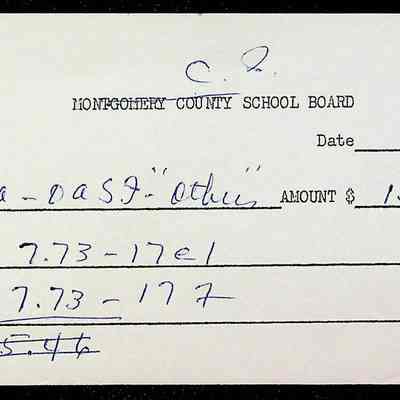 C. I.
MONTGOMERY COUNTY SCHOOL BOARD
Date
a - OASI - "Other" AMOUNT $ 1
7.73 - 17e1
7.73 - 177
5.46